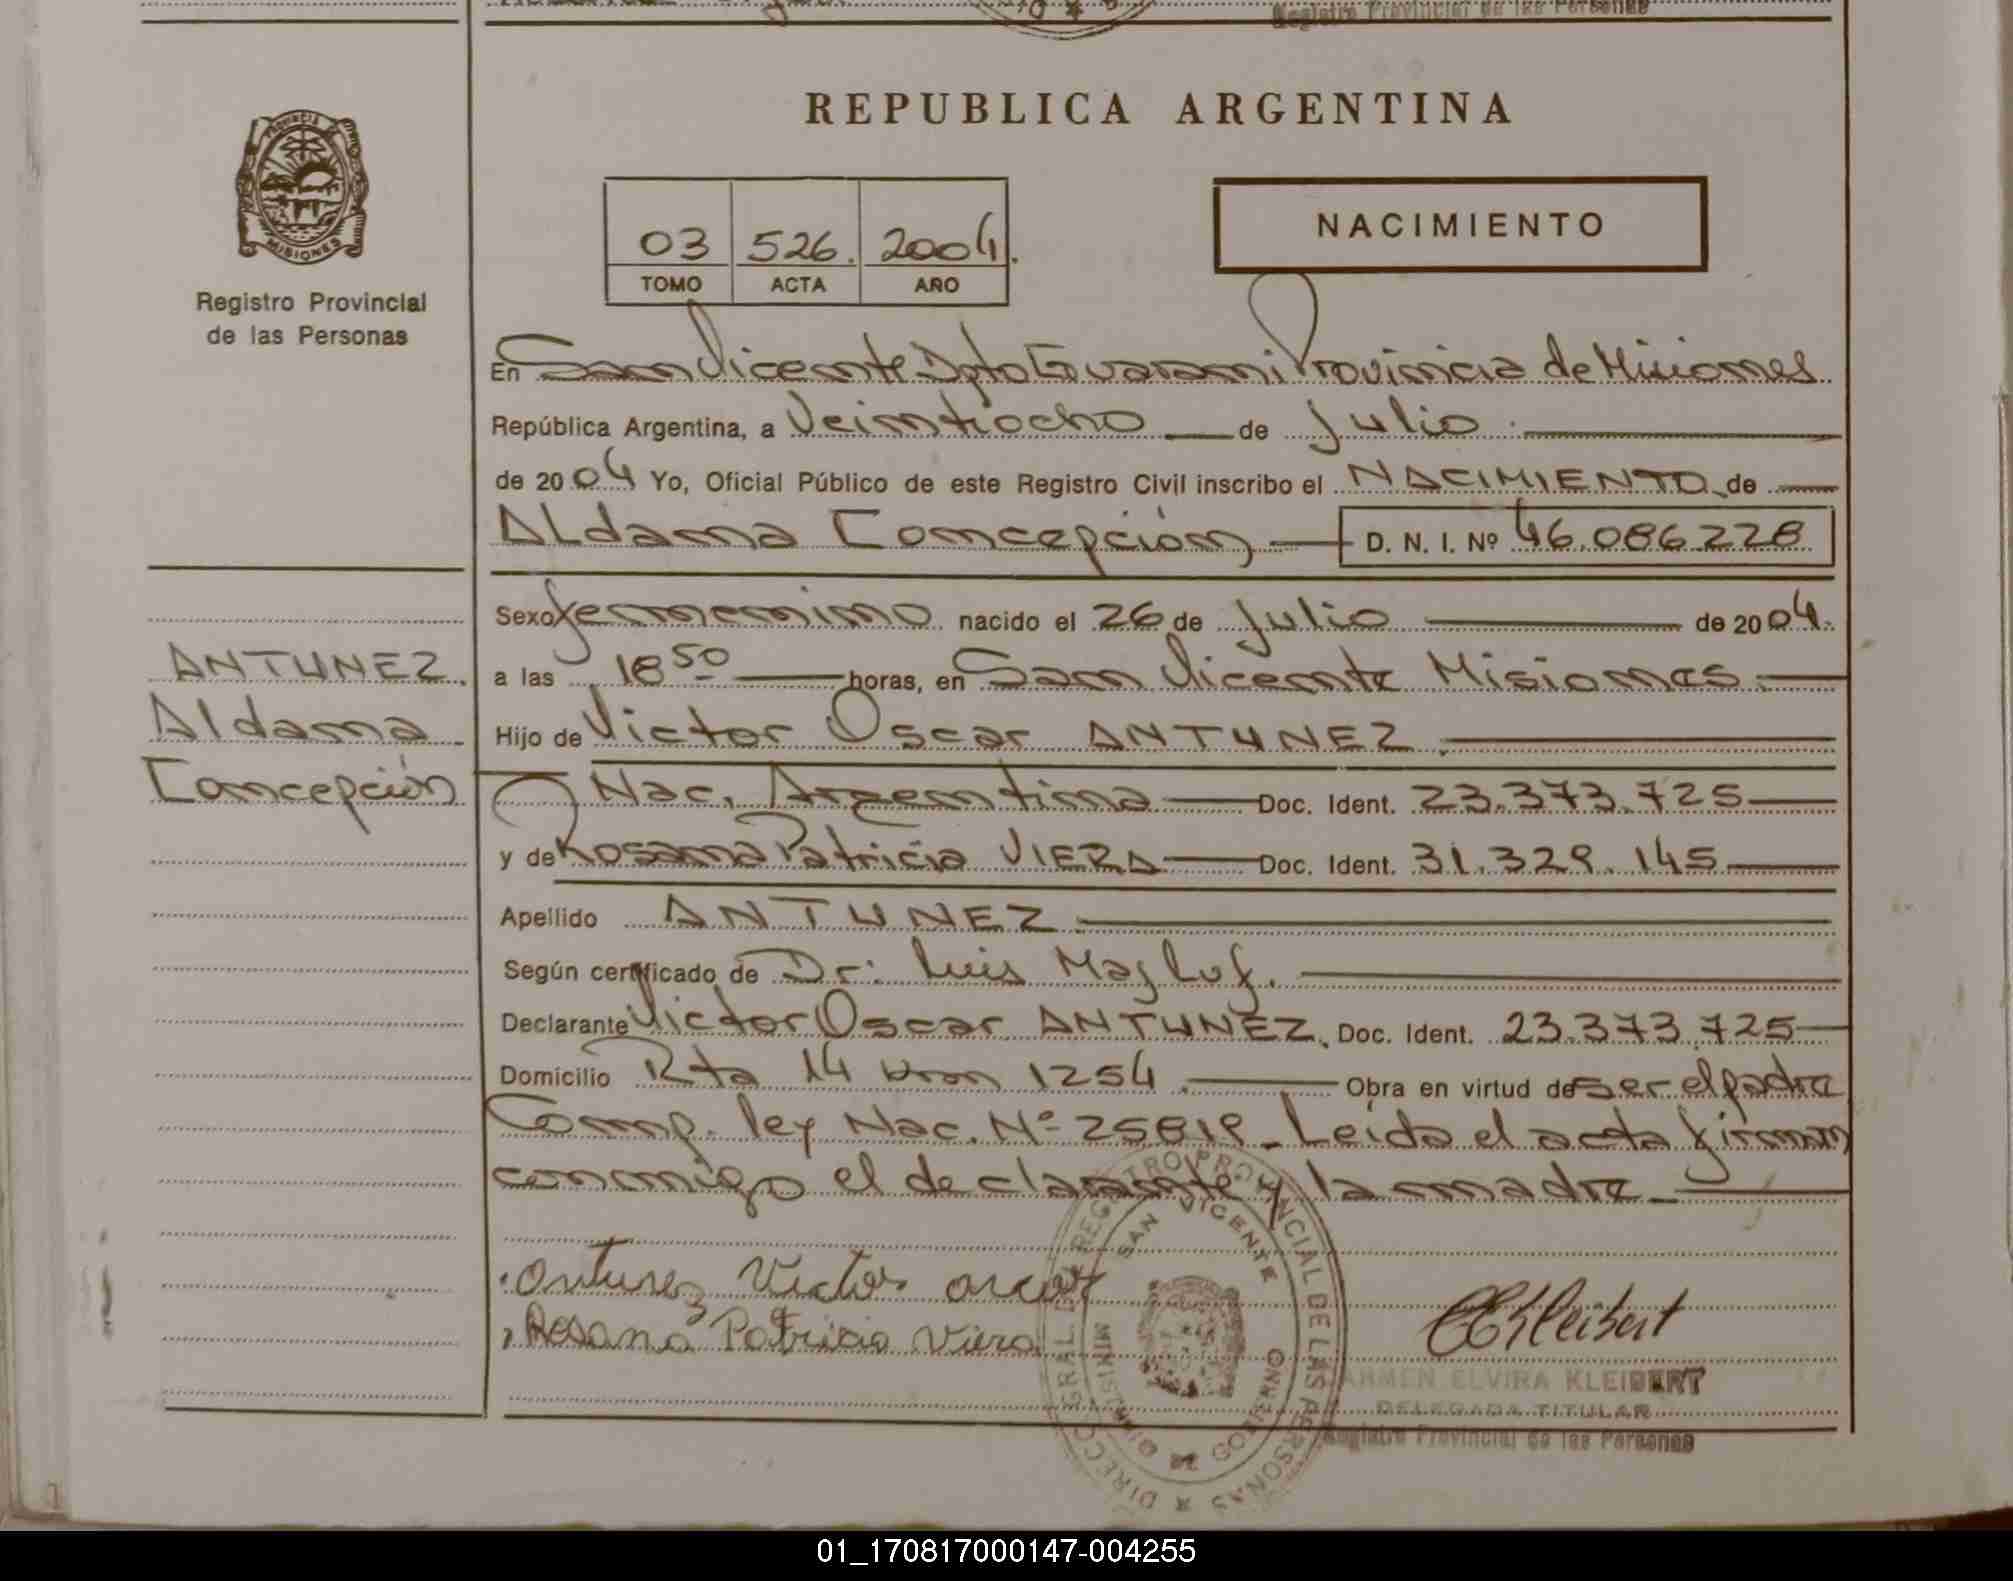 REPUBLICA ARGENTINA
PROVINCIA DE
MISIONES
Registro Provincial
de las Personas
03 526. 2004.
TOMO ACTA AÑO
NACIMIENTO
En San Vicente Dpto Guarani Provincia de Misiones
República Argentina, a Veintiocho de Julio
de 2004 Yo, Oficial Público de este Registro Civil inscribo el NACIMIENTO de
Aldama Concepción D. N. I. Nº 46.086.228
Sexo femenino nacido el 26 de Julio de 2004.
a las 18 50 horas, en San Vicente Misiones.
Hijo de Victor Oscar ANTUNEZ
Nac. Argentina Doc. Ident. 23.373.725
y de Rosana Patricia VIERA Doc. Ident. 31.329.145
Apellido ANTUNEZ
Según certificado de Dr: Luis
Declarante Victor Oscar ANTUNEZ. Doc. Ident. 23.373.725
Domicilio Rta 14 km 1254 Obra en virtud de ser el padre
Comp. ley Nac. Nº 25819. Leida el acta firman
conmigo el declarante y la madre
ANTUNEZ
Aldama
Concepción
Antunez Victor oscar
Rosana Patricia Viera
CEKleibert
CARMEN ELVIRA KLEIBERT
DELEGADA TITULAR
Registro Provincial de las Personas
DIRECC. GRAL. DEL REGISTRO PROVINCIAL DE LAS PERSONAS
SAN VICENTE
MINISTERIO DE GOBIERNO
Registro Provincial de las Personas
01_170817000147-004255